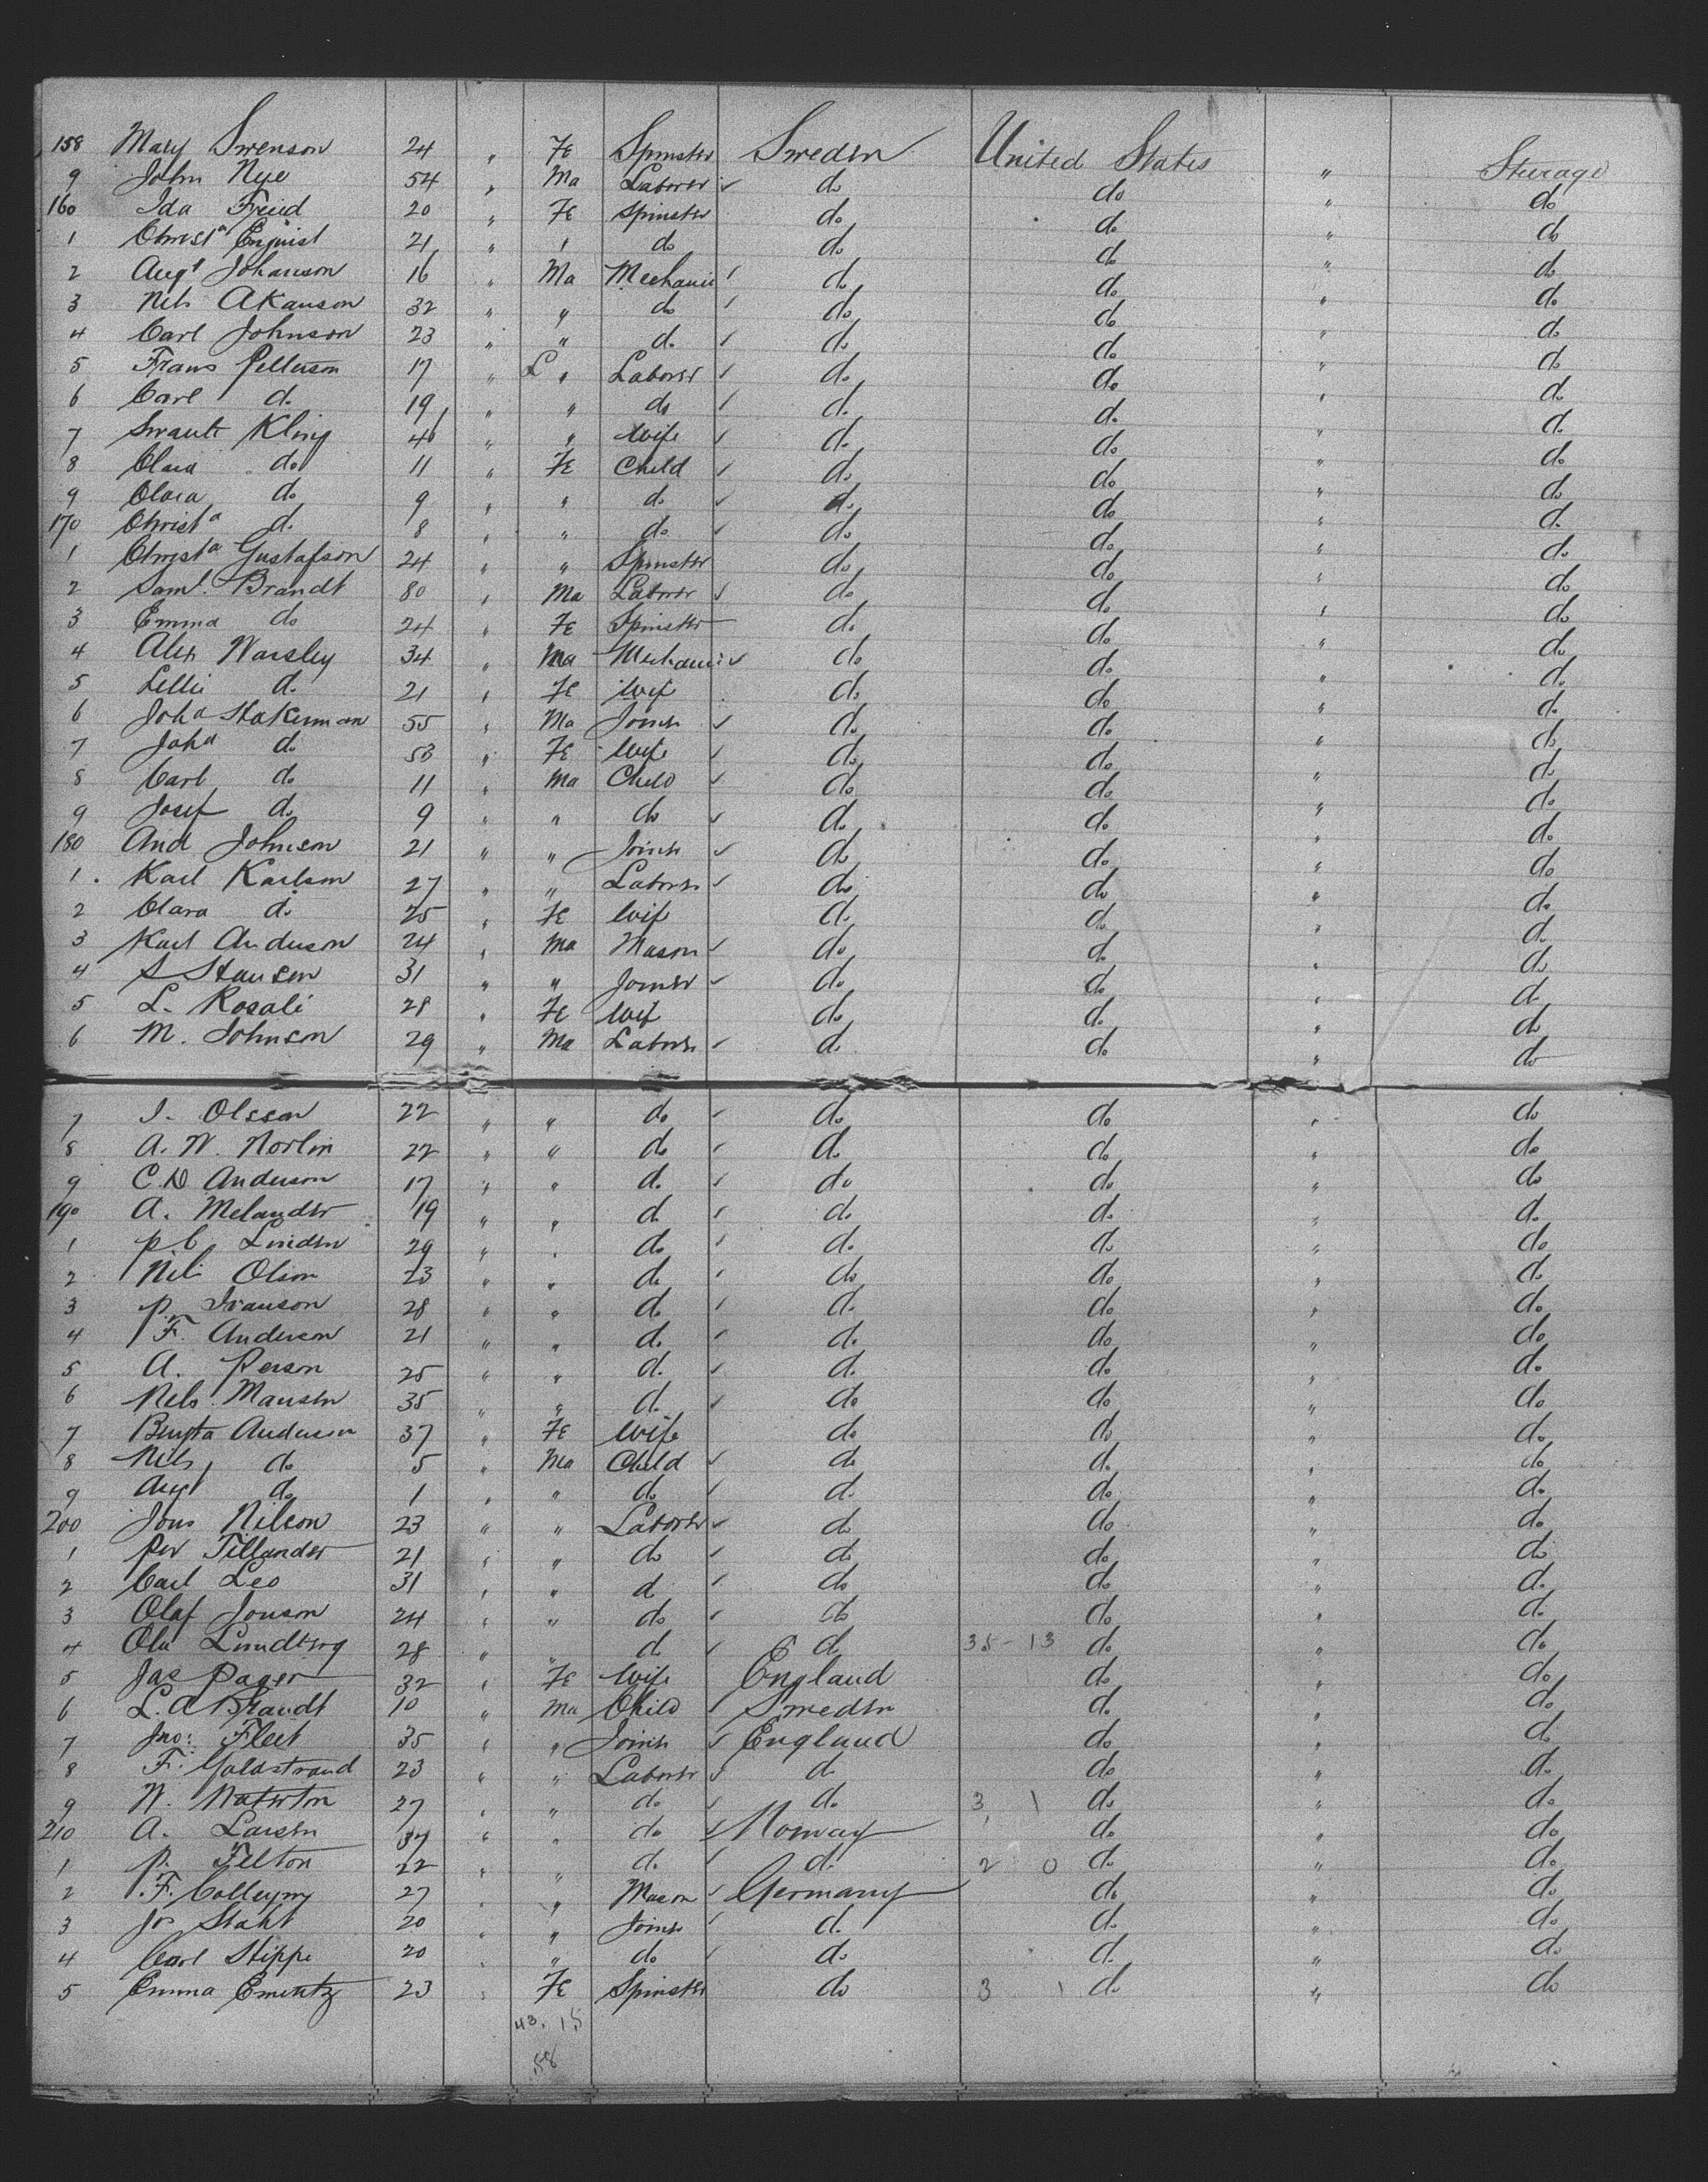 158 Mary Swenson 24 " Fe Spinster Sweden United States " Steerage
9 John Nye 54 " Ma Laborer ✓ do do " do
160 Ida Freid 20 " Fe Spinster do do " do
1 Christa Enquist 21 " " do do do " do
2 Augt Johanson 16 " Ma Mechanic ✓ do do " do
3 Nils Akanson 32 " " do ✓ do do " do
4 Carl Johnson 23 " " do ✓ do do " do
5 Frans Petterson 17 " L " Laborer ✓ do do " do
6 Carl do 19 " " do ✓ do do " do
7 Swante Kling 46 " " Wife ✓ do do " do
8 Clara do 11 " Fe Child ✓ do do " do
9 Clara do 9 " " do ✓ do do " do
170 Christa do 8 " " do ✓ do do " do
1 Christa Gustafson 24 " " Spinster do do " do
2 Saml. Brandt 80 " Ma Laborer ✓ do do " do
3 Emma do 24 " Fe Spinster do do " do
4 Alex Warsley 34 " Ma Mechanic ✓ do do " do
5 Lellie do 21 " Fe Wife do do " do
6 Joha Stakerman 55 " Ma Joiner ✓ do do " do
7 Joha do 53 " Fe Wife ✓ do do " do
8 Carl do 11 " Ma Child ✓ do do " do
9 Josef do 9 " " do ✓ do do " do
180 And Johnson 21 " " Joiner ✓ do do " do
1 Karl Karlson 27 " " Laborer ✓ do do " do
2 Clara do 25 " Fe Wife do do " do
3 Karl Anderson 24 " Ma Mason ✓ do do " do
4 S Stanson 31 " " Joiner ✓ do do " do
5 L. Rosali 28 " Fe Wife do do " do
6 M. Johnson 29 " Ma Laborer ✓ do do " do
7 I. Olsson 22 " " do ✓ do do " do
8 A. W. Norlin 22 " " do ✓ do do " do
9 C. D Anderson 17 " " do ✓ do do " do
190 A. Melander 19 " " do ✓ do do " do
1 P C Linden 29 " " do ✓ do do " do
2 Nils Olson 23 " " do ✓ do do " do
3 P. Ivanson 28 " " do ✓ do do " do
4 F. Anderson 21 " " do ✓ do do " do
5 A. Person 25 " " do ✓ do do " do
6 Nels Mansen 35 " " do ✓ do do " do
7 Bengta Anderson 37 " Fe Wife do do " do
8 Nils do 5 " Ma Child ✓ do do " do
9 Augt do 1 " " do ✓ do do " do
200 Jons Nilson 23 " " Laborer ✓ do do " do
1 Per Tillander 21 " " do ✓ do do " do
2 Carl Leo 31 " " do ✓ do do " do
3 Olaf Jonson 24 " " do ✓ do do " do
4 Ola Lundberg 28 " " do ✓ do 35-13 do " do
5 Jas Pager 32 " Fe Wife England do " do
6 L. A Brandt 10 " Ma Child ✓ Sweden do " do
7 Jno: Fleet 35 " " Joiner ✓ England do " do
8 F. Goldstrand 23 " " Laborer ✓ do do " do
9 W. Waterton 27 " " do ✓ do 3 1 do " do
210 A. Larsen 37 " " do ✓ Norway do " do
1 P. Felton 22 " " do ✓ do 2 0 do " do
2 F. 27 " " Mason ✓ Germany do " do
3 Jos Staht 20 " " Joiner ✓ do do " do
4 Carl Stippe 20 " " do ✓ do do " do
5 Emma Ementz 23 " Fe Spinster do 3 1 do " do
43. 15
58